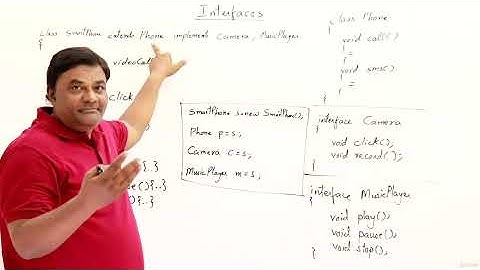 Interfaces
class SmartPhone extends Phone implement Camera, MusicPlayer
{
videoCall
click
()
{..}
()
{..}
()
{..}
SmartPhone s=new SmartPhone();
Phone p=s;
Camera c=s;
MusicPlayer m=s;
class Phone
{
void call()
{
=
}
void sms()
{
=
}
}
interface Camera
{
void click();
void record();
}
interface MusicPlayer
{
void play();
void pause();
void stop();
}